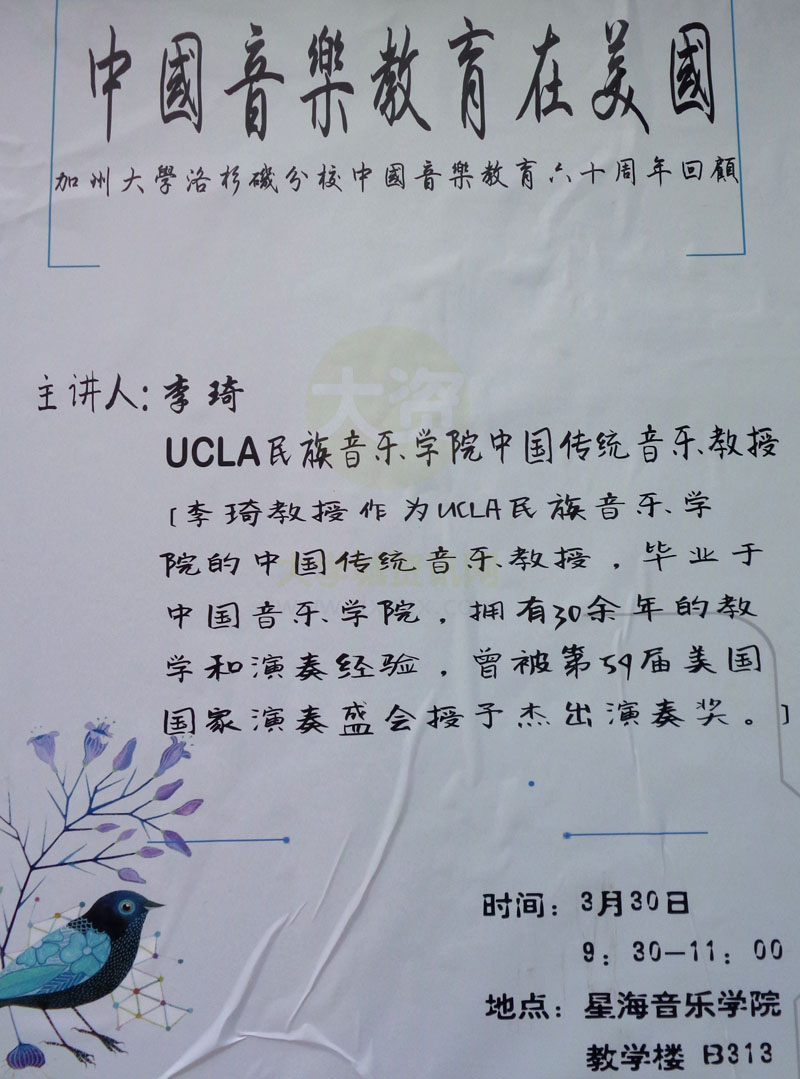 中國音樂教育在美國
加州大學洛杉磯分校中國音樂教育六十周年回顧
主讲人：李琦
UCLA民族音乐学院中国传统音乐教授
[李琦教授作为UCLA民族音乐学
院的中国传统音乐教授，毕业于
中国音乐学院，拥有30余年的教
学和演奏经验，曾被第59届美国
国家演奏盛会授予杰出演奏奖。]
时间：3月30日
9：30—11：00
地点：星海音乐学院
教学楼 B313